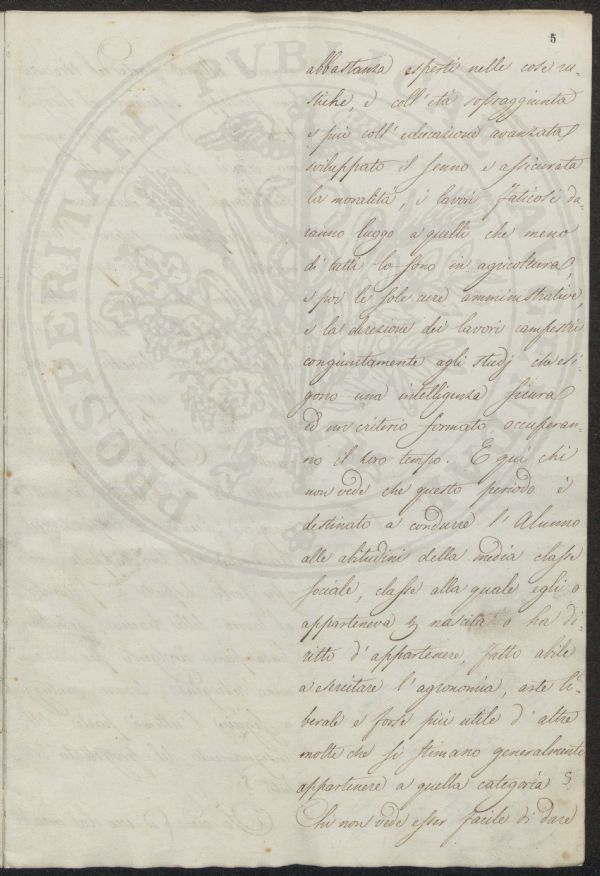 5
abbastanza esperti nelle cose ru-
stiche, e coll' età sopraggiunta
e più coll' educazione avanzata
sviluppato il senno e assicurata
la moralità, i lavori faticosi da-
ranno luogo a quelli che meno
di tutti lo sono in agricoltura,
e poi le sole cure amministrative,
e la direzione dei lavori campestri
congiuntamente agli studj che esi-
gono una intelligenza sicura
ed un criterio formato occuperan-
no il loro tempo. E qui chi
non vede che questo periodo è
destinato a condurre l' Alunno
alle abitudini della media classe
sociale, classe alla quale egli o
apparteneva per nascita o ha di-
ritto d' appartenere, fatto abile
a esercitare l' agronomia, arte li-
berale e forse più utile d' altre
molte che si stimano generalmente
appartenere a quella categoria?
Chi non vede esser facile di dare
PROSPERITATI PUBLICAE